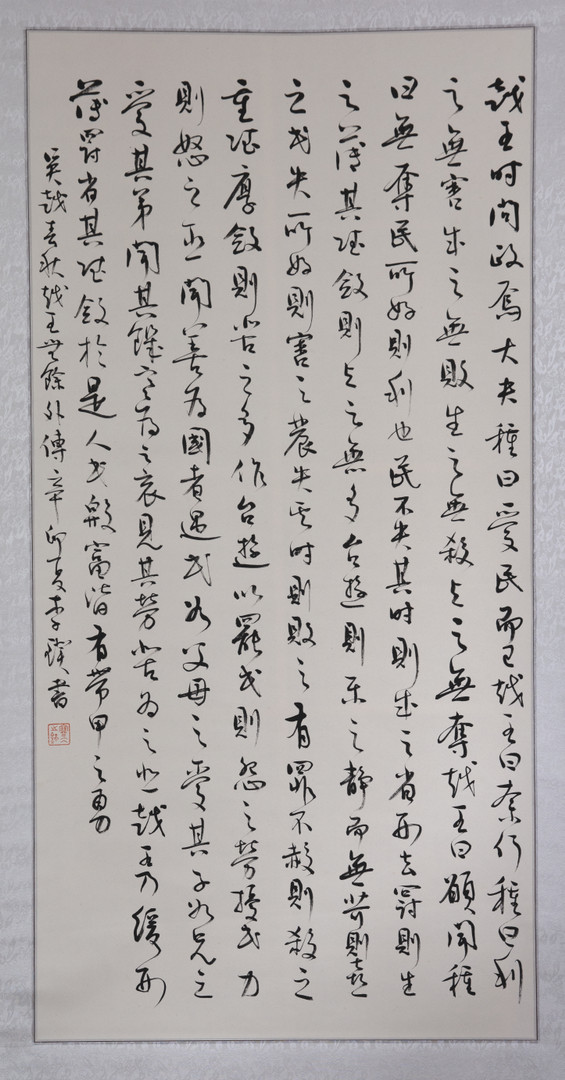 越王时问政焉大夫種曰爱民而已越王曰奈何種曰利
之無害成之無敗生之無殺与之無奪越王曰願聞種
曰無奪民所好則利也民不失其时則成之省刑去罰則生
之薄其賦斂則与之無多台遊則乐之静而無苛則喜
之民失所好則害之農失其时則敗之有罪不赦則殺之
重賦厚斂則苦之多作台遊以罷民則怨之劳擾民力
則怒之臣聞善为國者遇民如父母之愛其子如兄之
愛其弟聞其飢寒为之哀見其劳苦为之悲越王乃緩刑
薄罰省其賦斂於是人民殷富皆有帶甲之勇
吳越春秋越王無餘外傳辛卯夏李書